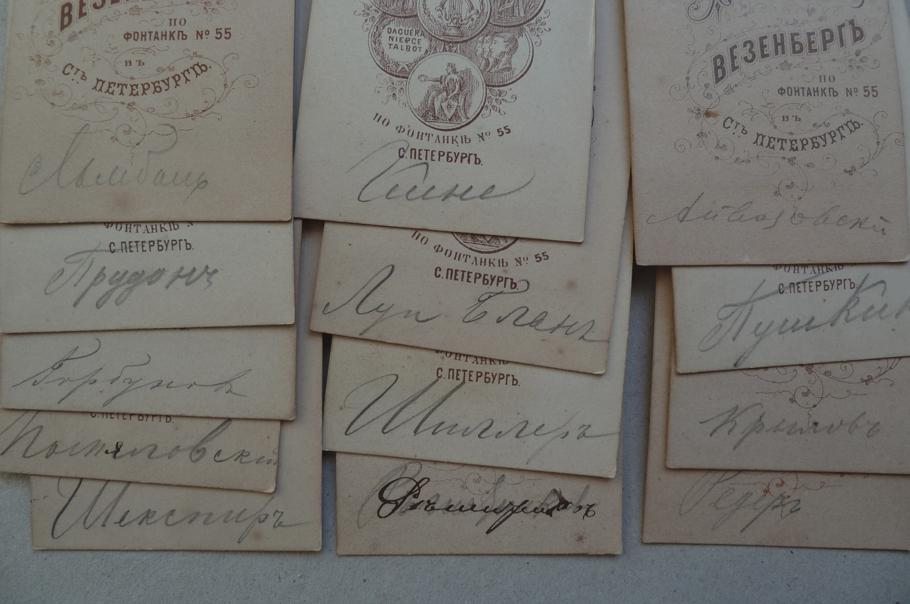 ВЕЗЕНБЕРГЪ
ПО
ФОНТАНКѢ № 55
ВЪ
СТЪ ПЕТЕРБУРГѢ.
Прудонъ
С.ПЕТЕРБУРГЪ.
Горбуновъ
С.ПЕТЕРБУРГЪ.
Шекспиръ
DAGUERR
NIEPCE
TALBOT
ПО ФОНТАНКѢ № 55
С.ПЕТЕРБУРГЪ.
ПО ФОНТАНКѢ № 55
С.ПЕТЕРБУРГЪ.
Луи Бланъ
ФОНТАНКѢ
С.ПЕТЕРБУРГЪ.
Шиллеръ
ВЕЗЕНБЕРГЪ
ПО
ФОНТАНКѢ № 55
ВЪ
СТЪ ПЕТЕРБУРГѢ.
Айвазовскій
ФОНТАНКѢ
С.ПЕТЕРБУРГЪ.
Пушкин
Крыловъ